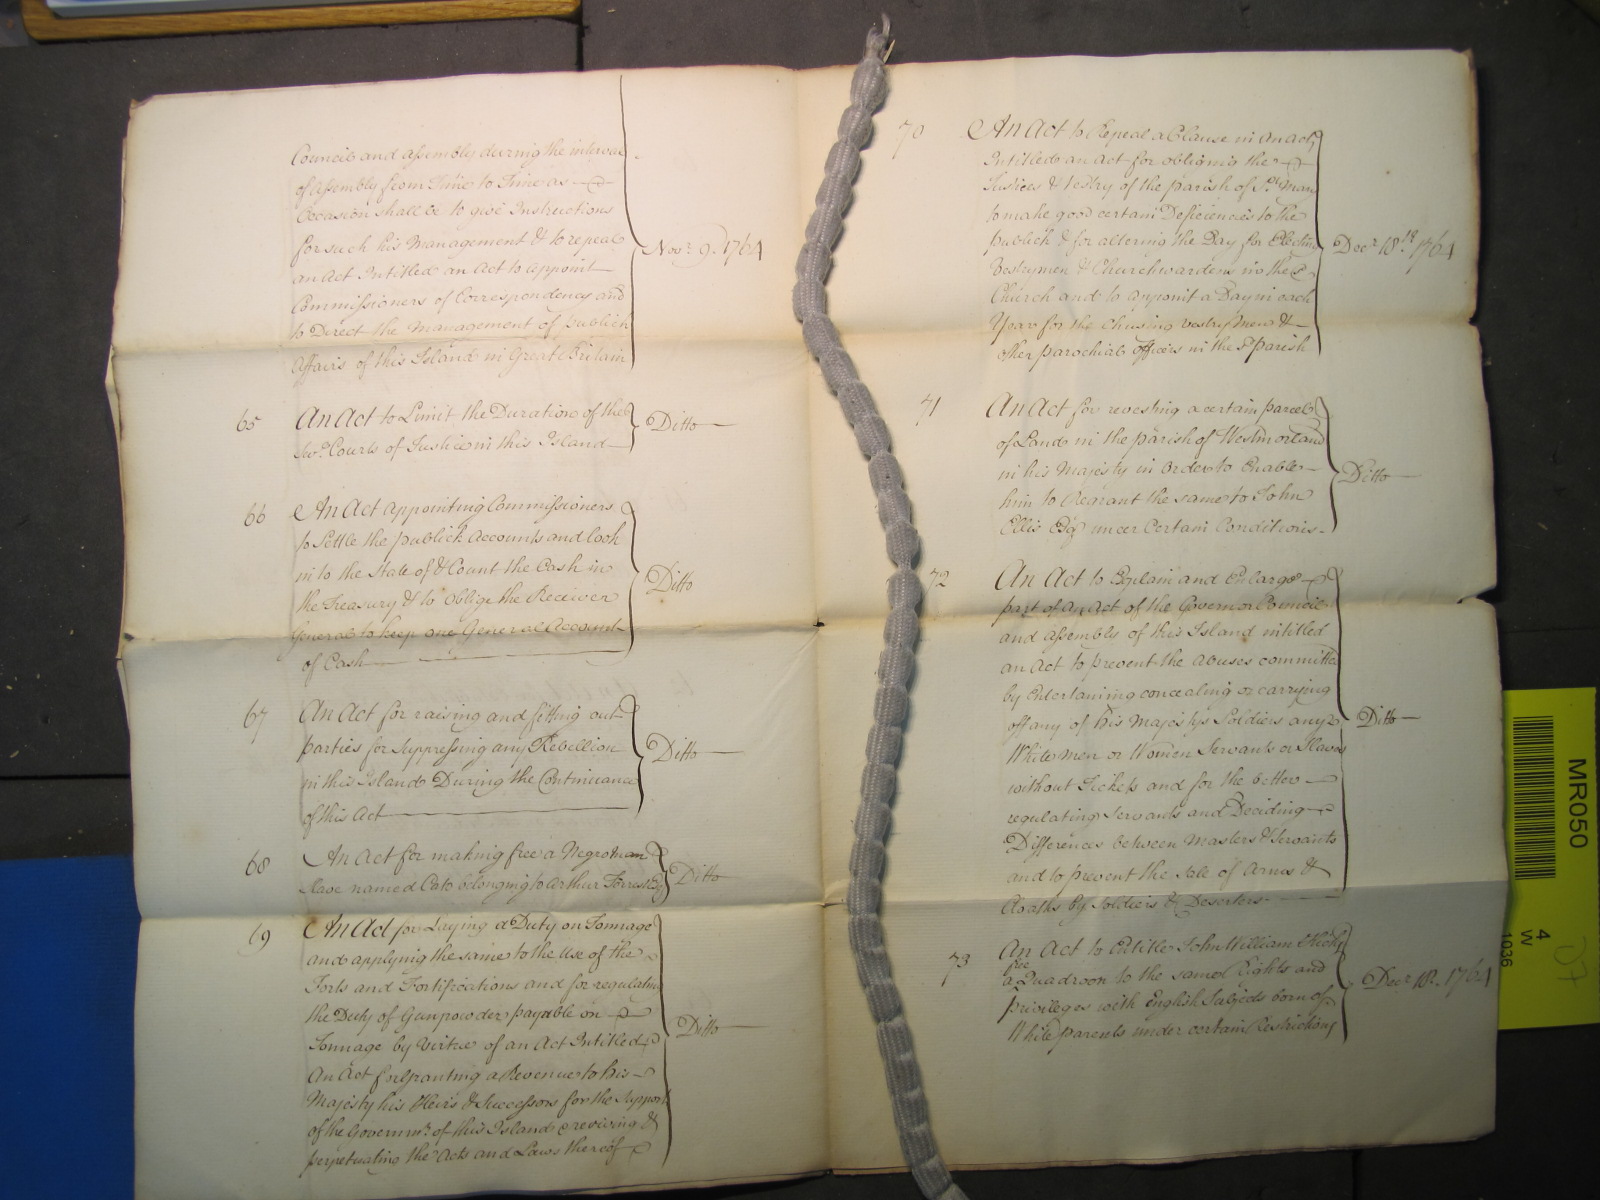 Council and assembly during the interval
of assembly from Time to Time as
Occasion shall be to give Instructions
for such his Management & to repeal
an Act Intitled an Act to appoint
Commissioners of Correspondency and
to Direct the Management of publick
Affairs of this Island in Great Britain
Novr. 9. 1764
65 An Act to Limit the Duration of the
Courts of Justice in this Island
Ditto
66 An Act appointing Commissioners
to Settle the publick Accounts and look
in to the State of & Count the Cash in
the Treasury & to Oblige the Receiver
General to keep one General Account
of Cash
Ditto
67 An Act for raising and fitting out
parties for Suppressing any Rebellion
in this Island During the Continuance
of this Act
Ditto
68 An Act for making free a Negroman
slave named Cato belonging to Arthur Forrest Esq
Ditto
69 An Act for Laying a Duty on Tonnage
and applying the same to the Use of the
Forts and Fortifications and for regulating
the Duty of Gunpowder payable on
Tonnage by Virtue of an Act Intitled
An Act for Granting a Revenue to his
Majesty his Heirs & Successors for the Support
of the Governmt. of this Island & reviving &
perpetuating the Acts and Laws thereof
Ditto
70 An Act to Repeal a Clause in an Act
Intitled an Act for obligmig the
Justices & Vestry of the parish of St. Mary
to make good certain Deficiencies to the
publick & for altering the Day for Electing
Vestrymen & Churchwardens in the
Church and to appoint a Day in each
Year for the chusing vestrymen &
other parochial officers in the sd. parish
Decr. 18th. 1764
71 An Act for revesting a certain parcel
of Land in the parish of Westmorland
in his Majesty in order to Enable
him to Regrant the same to John
Ellis Esqr. under Certain Conditions
Ditto
72 An Act to Explain and Enlarge
part of an Act of the Governor Council
and assembly of this Island intitled
an Act to prevent the abuses committed
by Entertaining concealing or carrying
off any of his Majestys Soldiers any
White men or Women Servants or Slaves
without Tickets and for the better
regulating Servants and Deciding
Differences between Masters & Servants
and to prevent the Sale of Arms &
Cloaths by Soldiers & Deserters
Ditto
73 An Act to Entitle John William Hicks
free
a Quadroon to the same Rights and
privileges with English Subjects born of
White parents under certain Restrictions
Decr. 18. 1764
MR050
4
W
1036
07